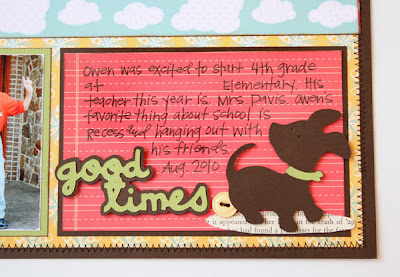 Owen was excited to start 4th grade
at Elementary. His
teacher this year is Mrs. Davis. Owen's
favorite thing about school is
Recess and hanging out with
his friends.
Aug. 2010
good
times
it appeared in the crash of '29
had found a